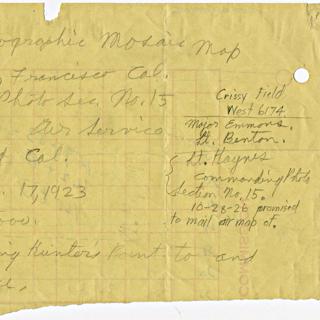 ographic Mosaic Map
Francisco Cal.
Photo Sec. No. 15
Air Service
Cal.
17, 1923
ng Hunter's Point to and
Crissy Field
West 6174.
Major Emmons.
Lt. Benton.
Lt. Haynes
commanding Photo
Section No. 15.
10-28-26 promised
to mail air map of.